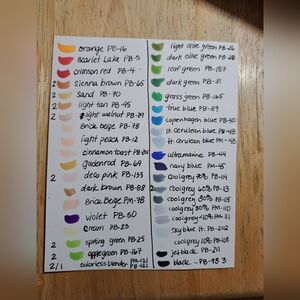 orange PB-16
Scarlet Lake PB-3
crimson red PB-4
2 sienna brown PB-65
2 Sand PB-70
2 light tan PB-95
2 light walnut PB-89
Brick beige PB-78
light peach PB-12
cinnamon toast PB-
goldenrod PB-69
2 deco pink PB-133
2 dark brown PB-88
Brick Beige PM-78
violet PB-50
cream PB-23
2 spring green PB-25
2 apple green PB-167
2/1 colorless blender PM-121
PB-121
light olive green PB-
dark olive green PB-28
leaf green PB-187
dark green PB-31
grass green PB-165
true blue PB-39
copenhagen blue PB-40
lt. Cerulean blue PB-48
lt. Cerulean blue PM-48
ultramarine PB-44
navy blue PM-45
cool grey 70% PB-114
2 cool grey 60% PB-113
cool grey 50% PB-
cool grey 20% PM-110
cool grey 40% PM-111
sky blue lt. PB-202
cool grey 10% PB-108
jet black PB-211
black PB-98 3